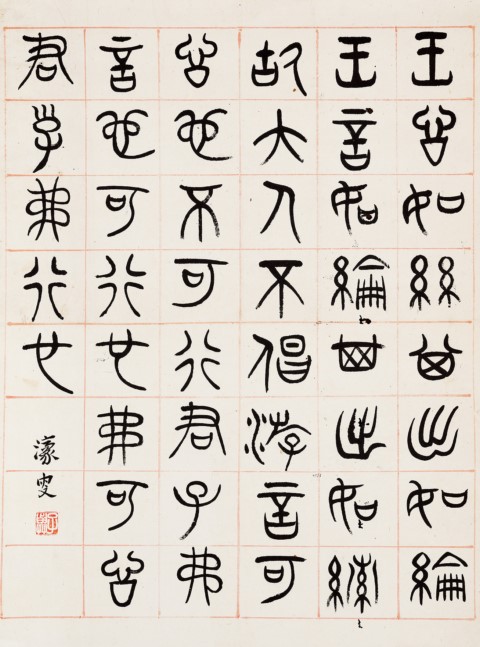 王言如絲其出如綸
王言如綸其出如綍
故大人不倡游言可
言也不可行君子弗
言也可行也弗可言
君子弗行也
濠叟